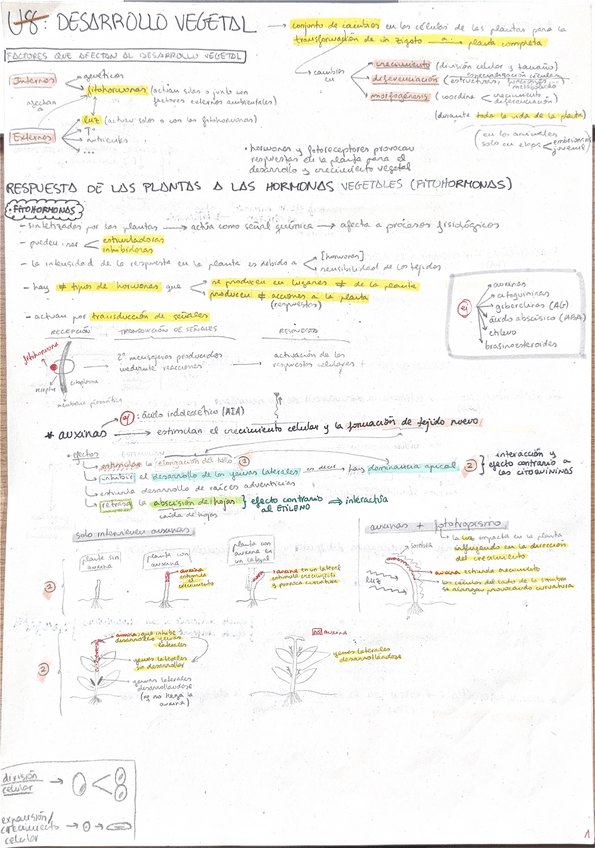 U8: DESARROLLO VEGETAL → conjunto de cambios en las células de las plantas para la
transformación de un zigoto a planta completa
FACTORES QUE AFECTAN AL DESARROLLO VEGETAL
cambios en
crecimiento (división celular y tamaño)
diferenciación (estructuras, funciones
morfogénesis (coordina crecimiento
diferenciación)
(durante toda la vida de la planta)
(en los animales
solo en etapa embrionaria
juvenil)
Internos
genéticos
fitohormonas (actúan solas o junto con
factores externos ambientales)
afectan a
Externos
luz (actúa sola o con las fitohormonas)
Tº
nutrientes
...
• hormonas y fotoreceptores provocan
respuestas en la planta para el
desarrollo y crecimiento vegetal
RESPUESTA DE LAS PLANTAS A LAS HORMONAS VEGETALES (FITOHORMONAS)
• FITOHORMONAS
- sintetizadas por las plantas → actúa como señal química → afecta a procesos fisiológicos
- pueden ser estimuladoras
inhibidoras
- la intensidad de la respuesta en la planta es debida a [hormonas]
sensibilidad de los tejidos
- hay ≠ tipos de hormonas que se producen en lugares ≠ de la planta
producen ≠ acciones a la planta
(respuestas)
- actúan por transducción de señales
ej
auxinas
citoquininas
giberelinas (AG)
ácido abscísico (ABA)
etileno
brasinoesteroides
RECEPCIÓN → TRANSDUCCIÓN DE SEÑALES → RESPUESTA
fitohormona
receptor
citoplasma
membrana plasmática
2º mensajeros producidos
mediante reacciones
activación de las
respuestas celulares
ej: ácido indolacético (AIA)
* auxinas → estimulan el crecimiento celular y la formación de tejido nuevo
• efectos
estimular la elongación del tallo 1
inhibir el desarrollo de las yemas laterales es decir hay dominancia apical 2
interacción y
efecto contrario a
las CITOQUININAS
estimula desarrollo de raíces adventicias
retrasa la abscisión de hojas } efecto contrario
al ETILENO → interactúa
caída de hojas
solo intervienen auxinas
auxinas + fototropismo
1
planta sin
auxina
planta con
auxina
planta con
auxina en
un lateral
auxina
estimula
crecimiento
auxina en un lateral
estimula crecimiento
y provoca curvatura
la luz impacta en la planta
influyendo en la dirección
del crecimiento
sombra
luz
auxina estimula crecimiento
las células del lado de la sombra
se alargan provocando curvatura
2
auxina que inhibe
desarrollo yemas
laterales
yemas laterales
sin desarrollar
yemas laterales
desarrollándose
(ej no llega la
auxina)
no auxina
yemas laterales
desarrollándose
división
celular
expansión/
crecimiento
celular
1